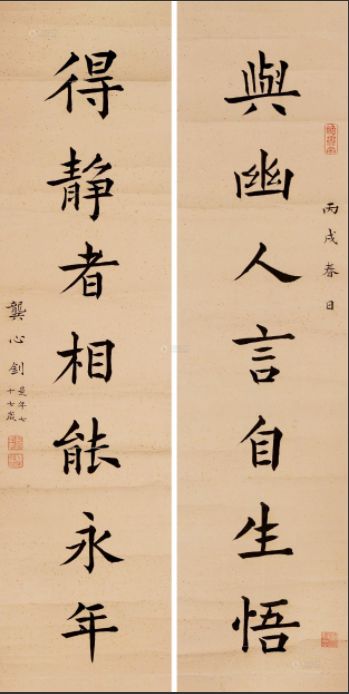 與幽人言自生悟
丙戌春日
得静者相能永年
龔心釗
是年七
十七歲